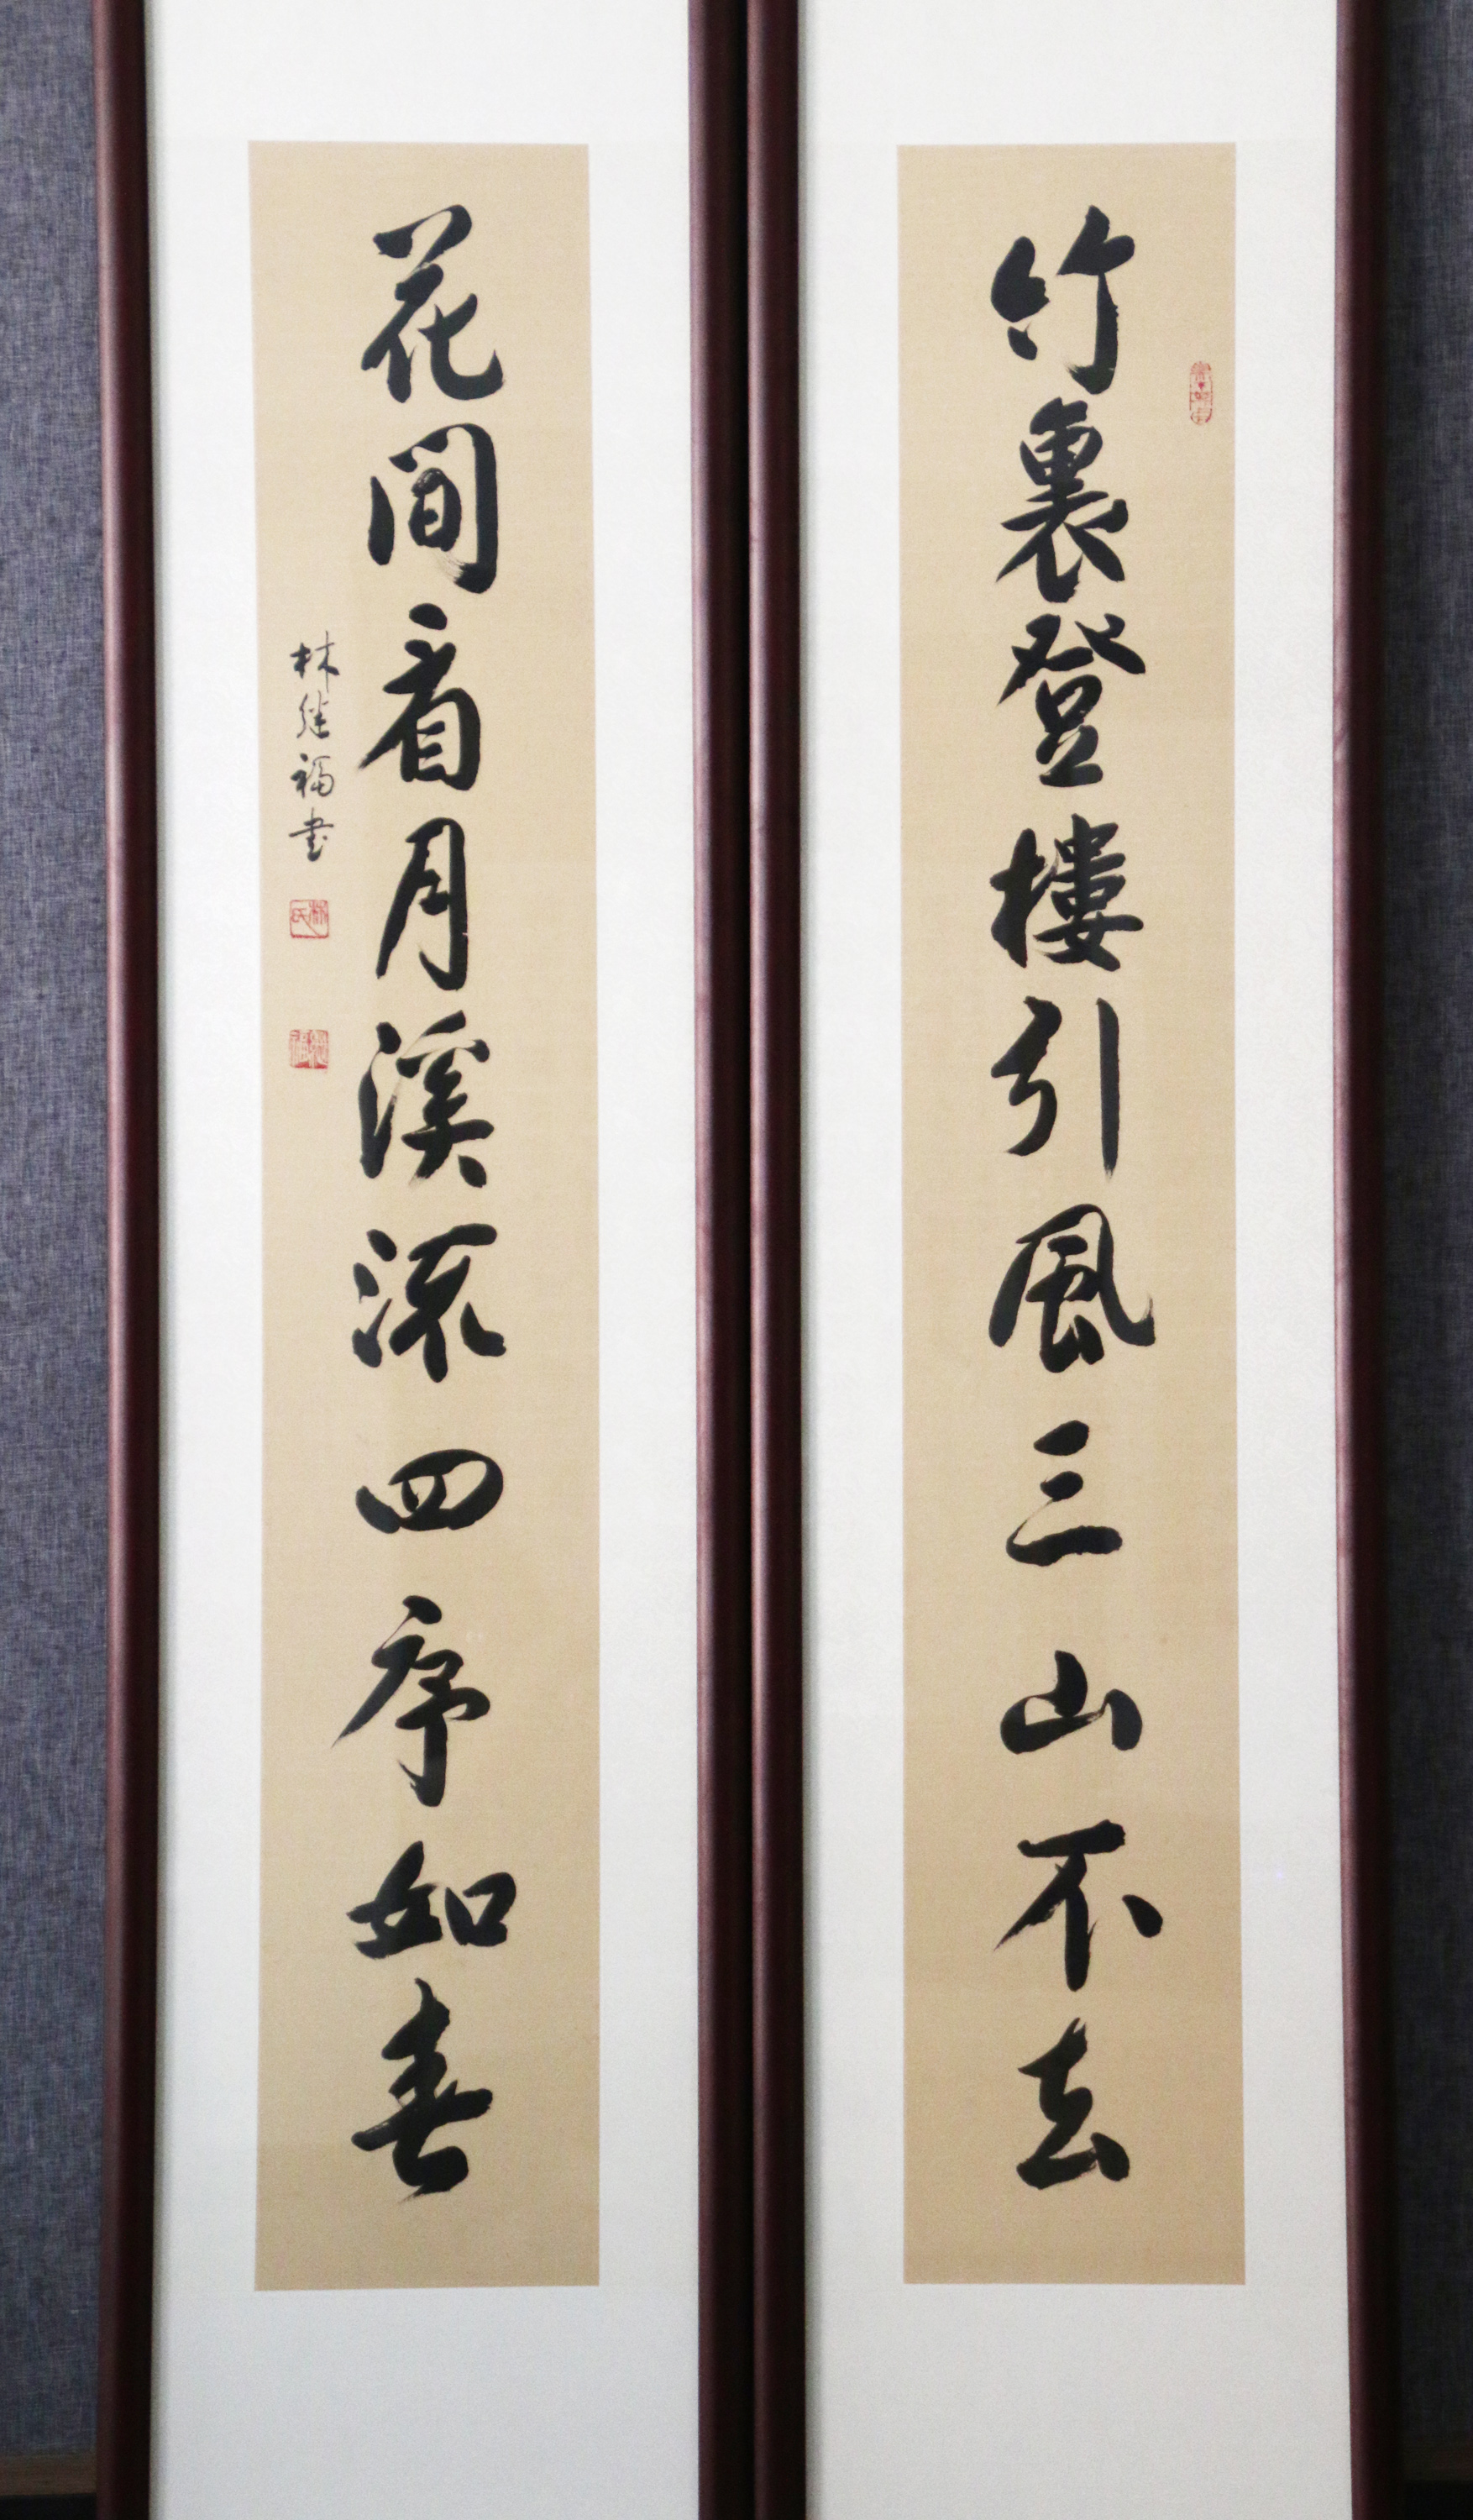 竹裏登樓引風三山不去
花間看月溪流四序如春
林继福书
林氏